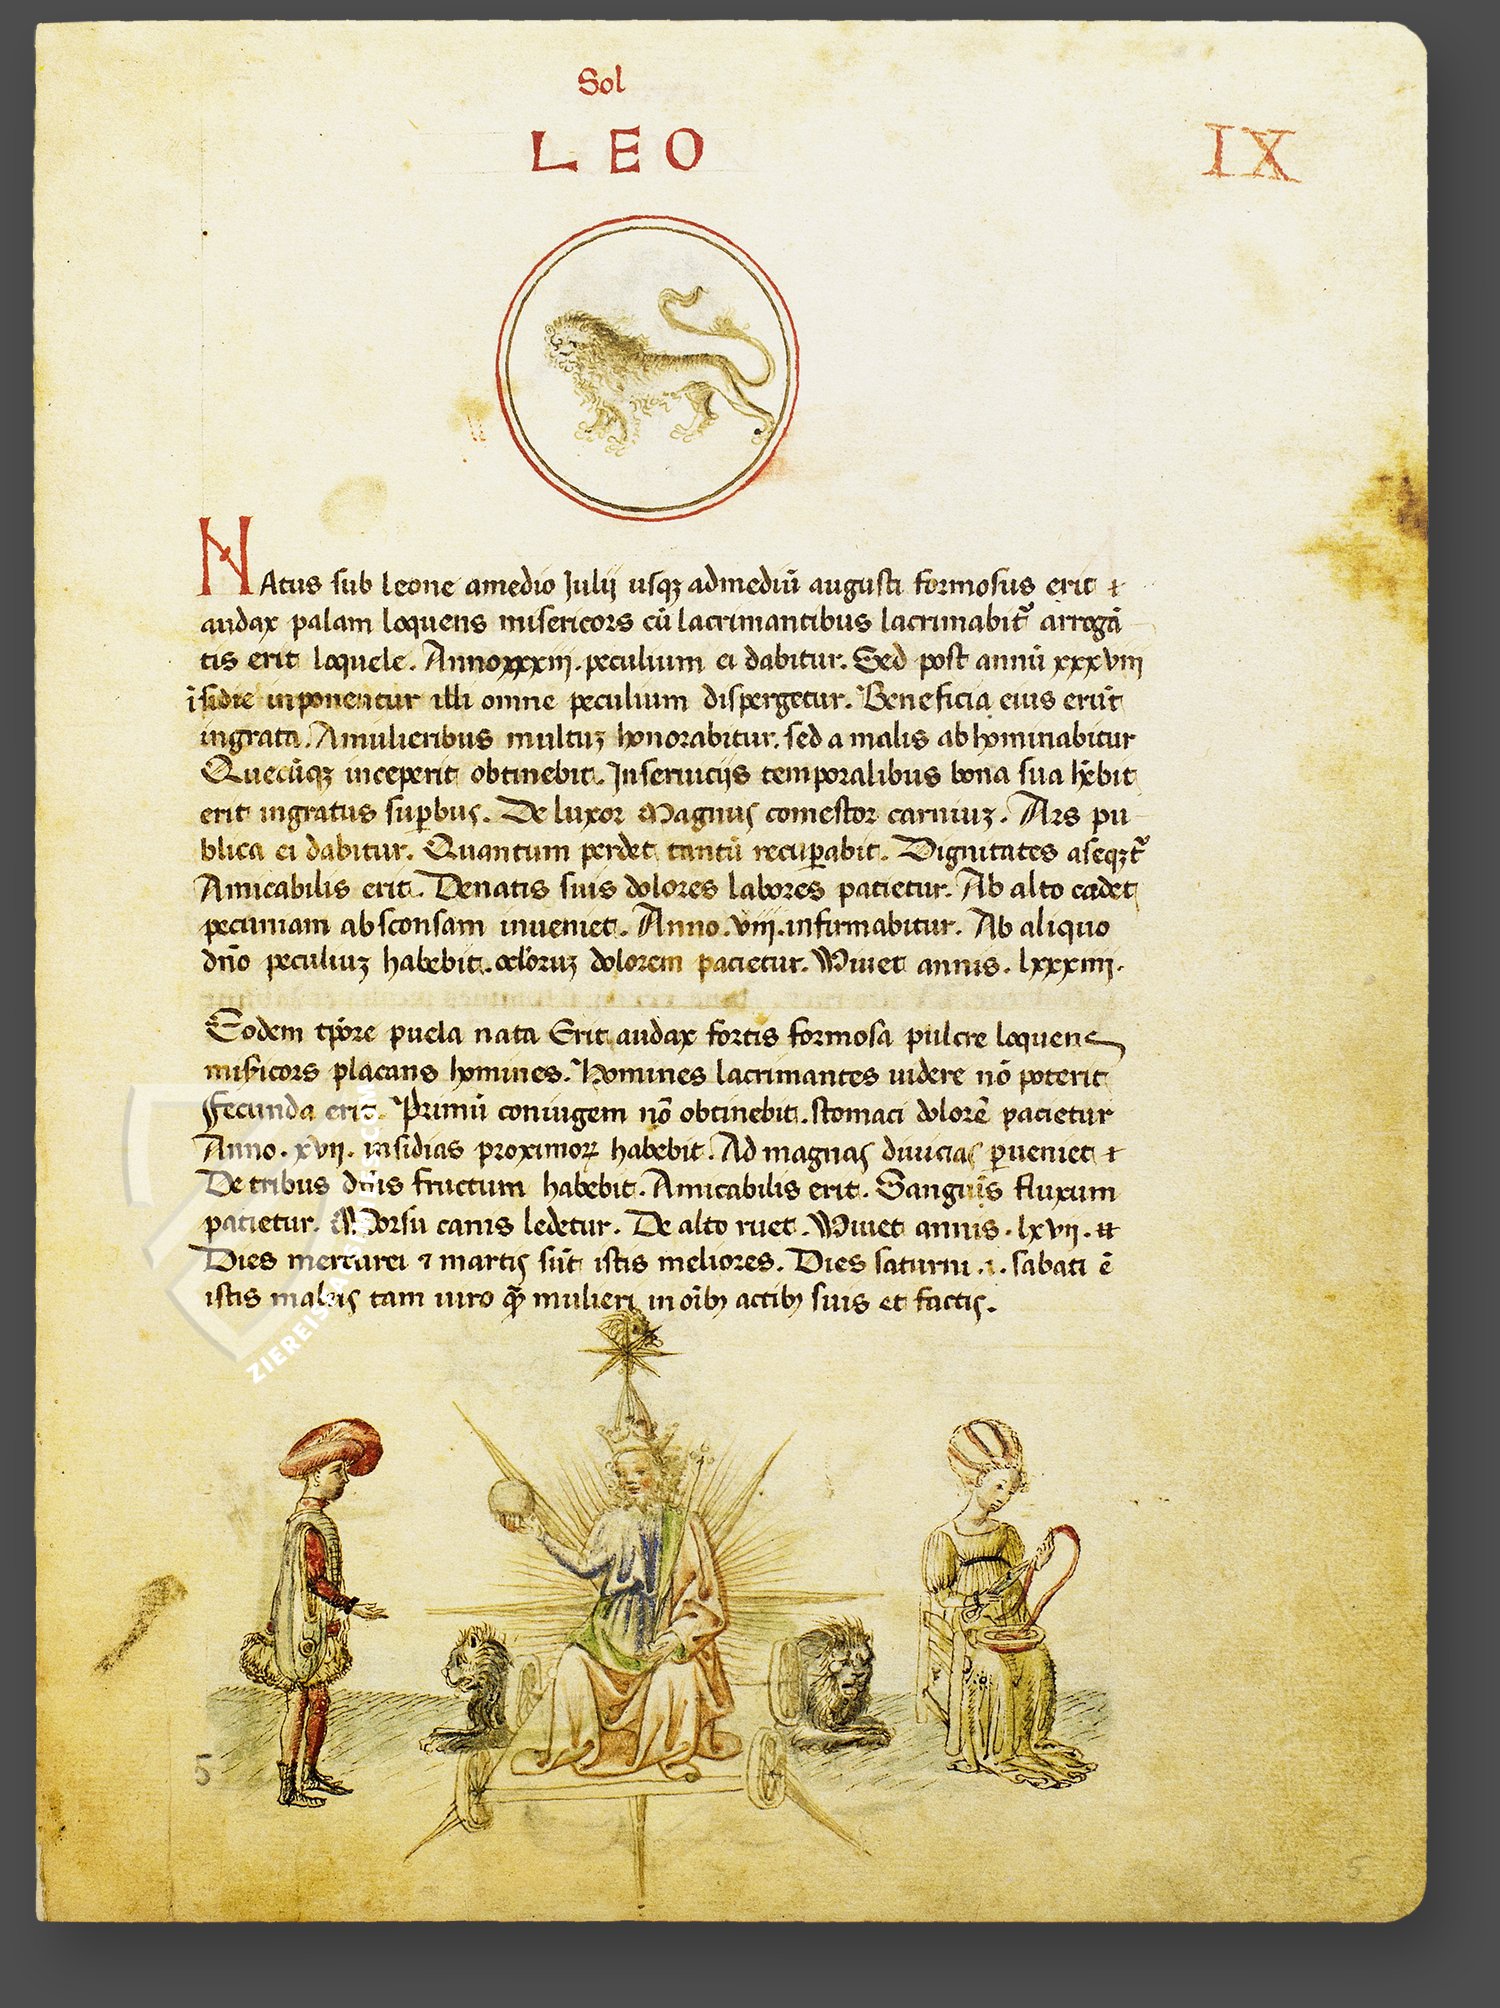 Sol
LEO
IX
NAtus sub leone amedio Julij usqꝫ admediū augusti formosus erit ⁊
audax palam loquens misericors cū lacrimantibus lacrimabit᷑ arrogā
tis erit loquele. Anno xxxiij. peculium ei dabitur. Sed post annū xxxviij
īsidie inponentur illi omne peculium dispergetur. Beneficia eius erūt
ingrata. Amulieribus multuꝫ honorabitur. sed a malis abhominabitur
Quecūqꝫ inceperit obtinebit. Inseruicijs temporalibus bona sua hēbit
erit ingratus suꝑbus. De luxor Magnus comestor carniuꝫ. Ars pu
blica ei dabitur. Quantum perdet tantū recuꝑabit. Dignitates aseqꝫt᷑
Amicabilis erit. Denatis suis dolores labores patietur. Ab alto cadet
pecuniam absconsam inueniet. Anno .viij. infirmabitur. Ab aliquo
dn̄o peculiuꝫ habebit. dolorem pacietur. Viuet annis. lxxxiiij.
Eodem tp̄ore puela nata Erit audax fortis formosa pulcre loquens
mis̄icors placans homines. Homines lacrimantes uidere nō poterit
Fecunda erit. Primū coniugem nō obtinebit. stomaci dolorē pacietur
Anno. xvij. insidias proximoꝝ habebit. Ad magnas diuicias ꝑueniet ⁊
De tribus dn̄is fructum habebit. Amicabilis erit. Sangūis fluxum
patietur. Morsu canis ledetur. De alto ruet. Viuet annis. lxvij.
Dies mercurei ⁊ martis sūt istis meliores. Dies saturni .i. sabati ē
istis malus tam uiro qꝫ̄ mulieri in oīb⁹ actib⁹ suis et factis.
ZIEREIS
5
5